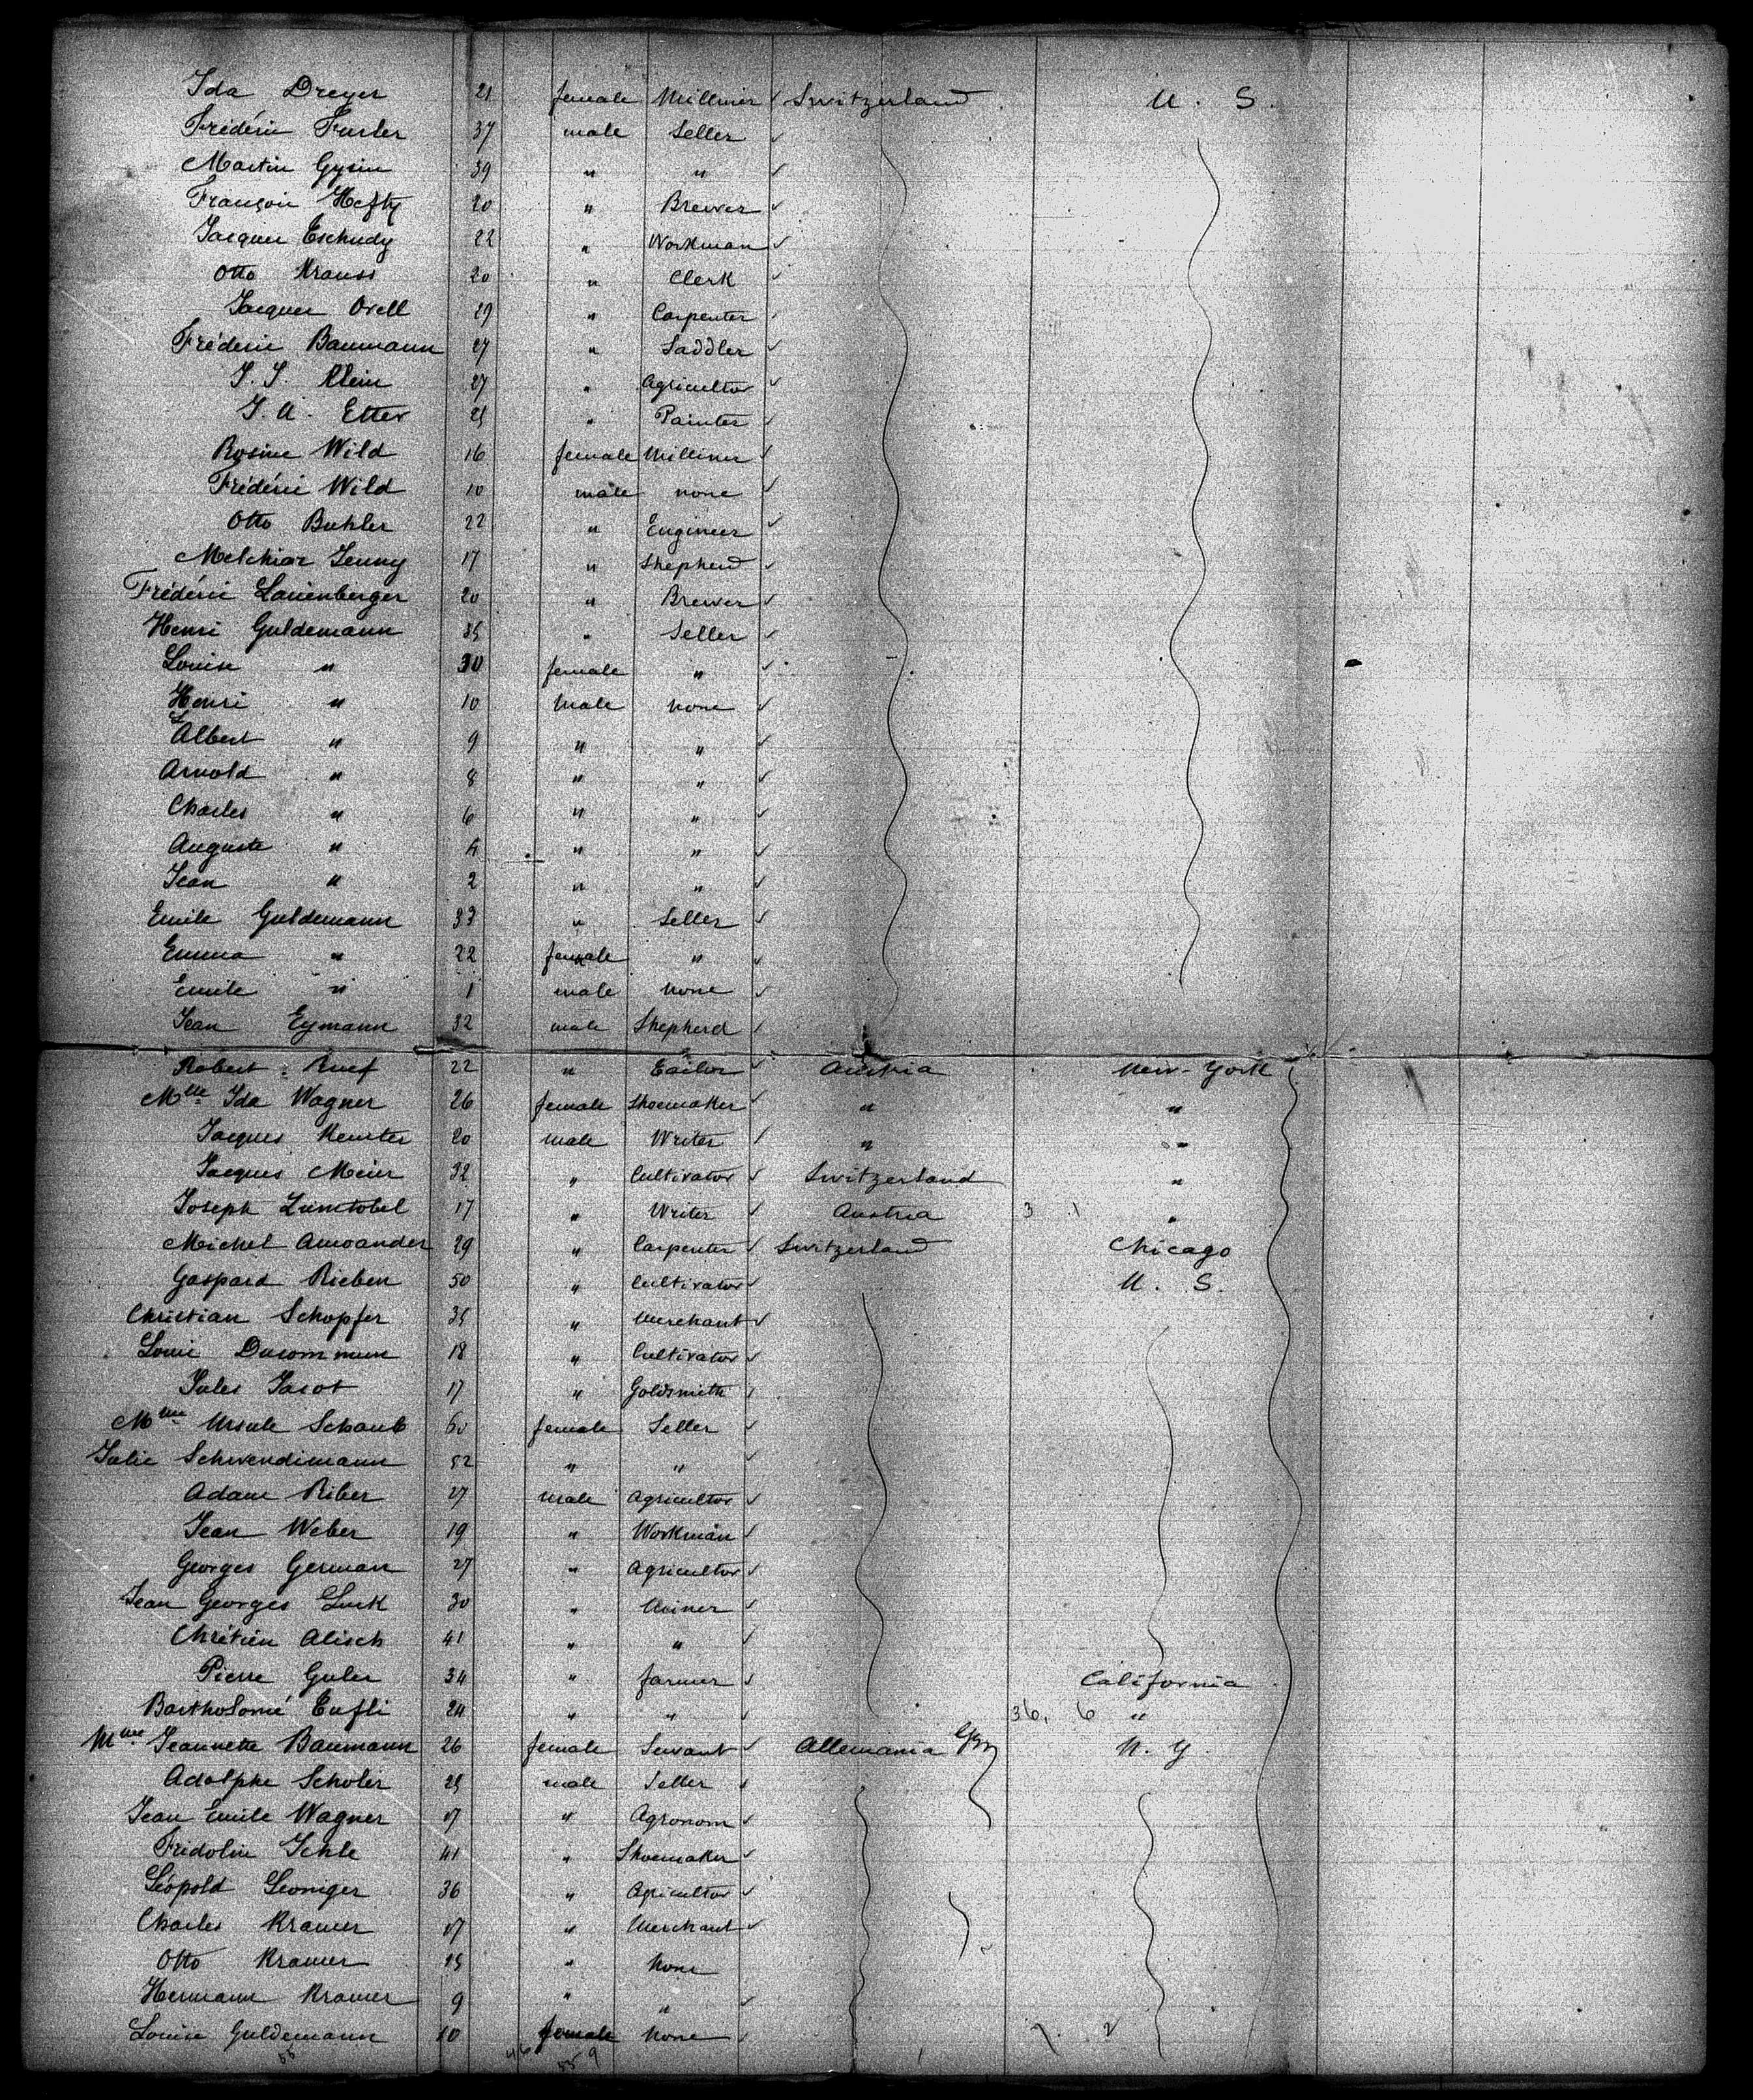 Ida Dreyer 21 female Milliner Switzerland U. S.
Frédéric Furler 37 male Seller
Martin Gysin 39 " "
François Hefty 20 " Brewer
Jacques Tschudy 22 " Workman
Otto Krauss 20 " Clerk
Jacques Orell 29 " Carpenter
Fréderic Baumann 27 " Saddler
J. J. Klein 27 " Agricultor
J. U. Etter " Painter
Rosine Wild 16 female Milliner
Frédéric Wild 10 male none
Otto Buhler 22 " Engineer
Melchior Jenny 17 " Shepherd
Frédéric Lauenberger 20 " Brewer
Henri Guldemann 35 " Seller
Louise " 30 female "
Henri " 10 male none
Albert " 9 " "
Arnold " 8 " "
Charles " 6 " "
Auguste " 4 " "
Jean " 2 " "
Emile Guldemann 33 " Seller
Emma " 22 female "
Emile " 1 male none
Jean Eymann 32 male Shepherd
Robert Ruef 22 " Tailor Austria New-York
Mlle Ida Wagner 26 female Shoemaker " "
Jacques 20 male Writer " "
Jacques Meier 32 " Cultivator Switzerland "
Joseph Zumtobel 17 " Writer Austria 3 1 "
Michel Amoander 29 " Carpenter Switzerland Chicago
Gaspard Rieben 50 " Cultivator U. S.
Christian Schopfer 35 " Merchant
Louis Ducommun 18 " Cultivator
Jules Jacot 17 " Goldsmith
Mme Ursule Schaub 60 female Seller
Julie Schwendimann 52 " "
Adam Riber 27 male Agricultor
Jean Weber 19 " Workman
Georges German 27 " Agricultor
Jean Georges Luck 30 " Miner
Chrétien Alisch 41 " "
Pierre Guler 34 " farmer California
Bartholomé 24 " " 36, 6 "
Mme Jeannette Baumann 26 female Servant Allemania N. Y.
Adolphe Scholer male Seller
Jean Emile Wagner 17 " Agronom
Fridolin Ichle 41 " Shoemaker
Léopold 36 " Agricultor
Charles Kramer 17 " Merchant
Otto Kramer 15 " None
Hermann Kramer 9 " "
Louise Guldemann 10 female None 7. 2
55 46 55 9